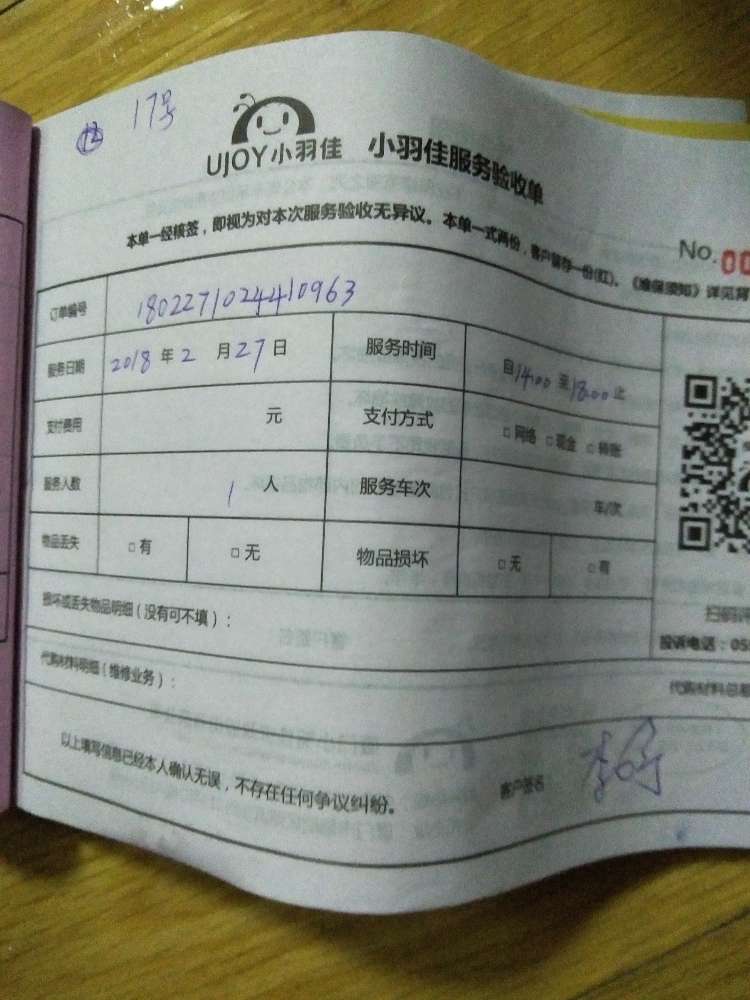 17号
UJOY小羽佳 小羽佳服务验收单
本单一经核签，即视为对本次服务验收无异议。本单一式两份，客户留存一份(红)。《维保须知》详见背
No.00
订单编号 1802271024410963
服务日期 2018 年 2 月 27 日 服务时间 自14:00 至18:00 止
支付费用 元 支付方式 □ 网络 □ 现金 □ 转账
服务人数 1 人 服务车次 车/次
物品丢失 □ 有 □ 无 物品损坏 □ 无 □ 有
损坏或丢失物品明细（没有可不填）：
扫码
投诉电话：05
代购材料明细（维修业务）： 代购材料总
以上填写信息已经本人确认无误，不存在任何争议纠纷。 客户签名